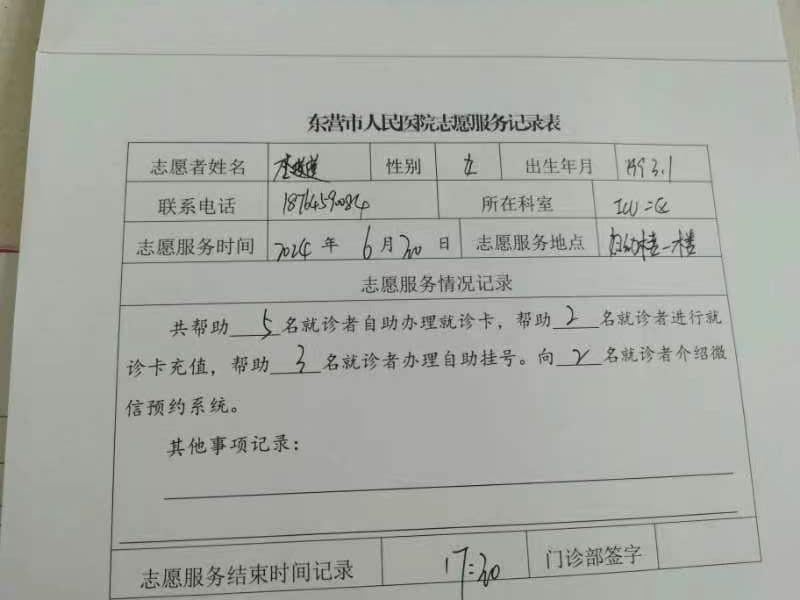 东营市人民医院志愿服务记录表
志愿者姓名 性别 女 出生年月 1993.1
联系电话 所在科室 ICU二区
志愿服务时间 2024年 6月30日 志愿服务地点 一楼
志愿服务情况记录
共帮助 5 名就诊者自助办理就诊卡，帮助 2 名就诊者进行就
诊卡充值，帮助 3 名就诊者办理自助挂号。向 2 名就诊者介绍微
信预约系统。
其他事项记录：
志愿服务结束时间记录 17:30 门诊部签字